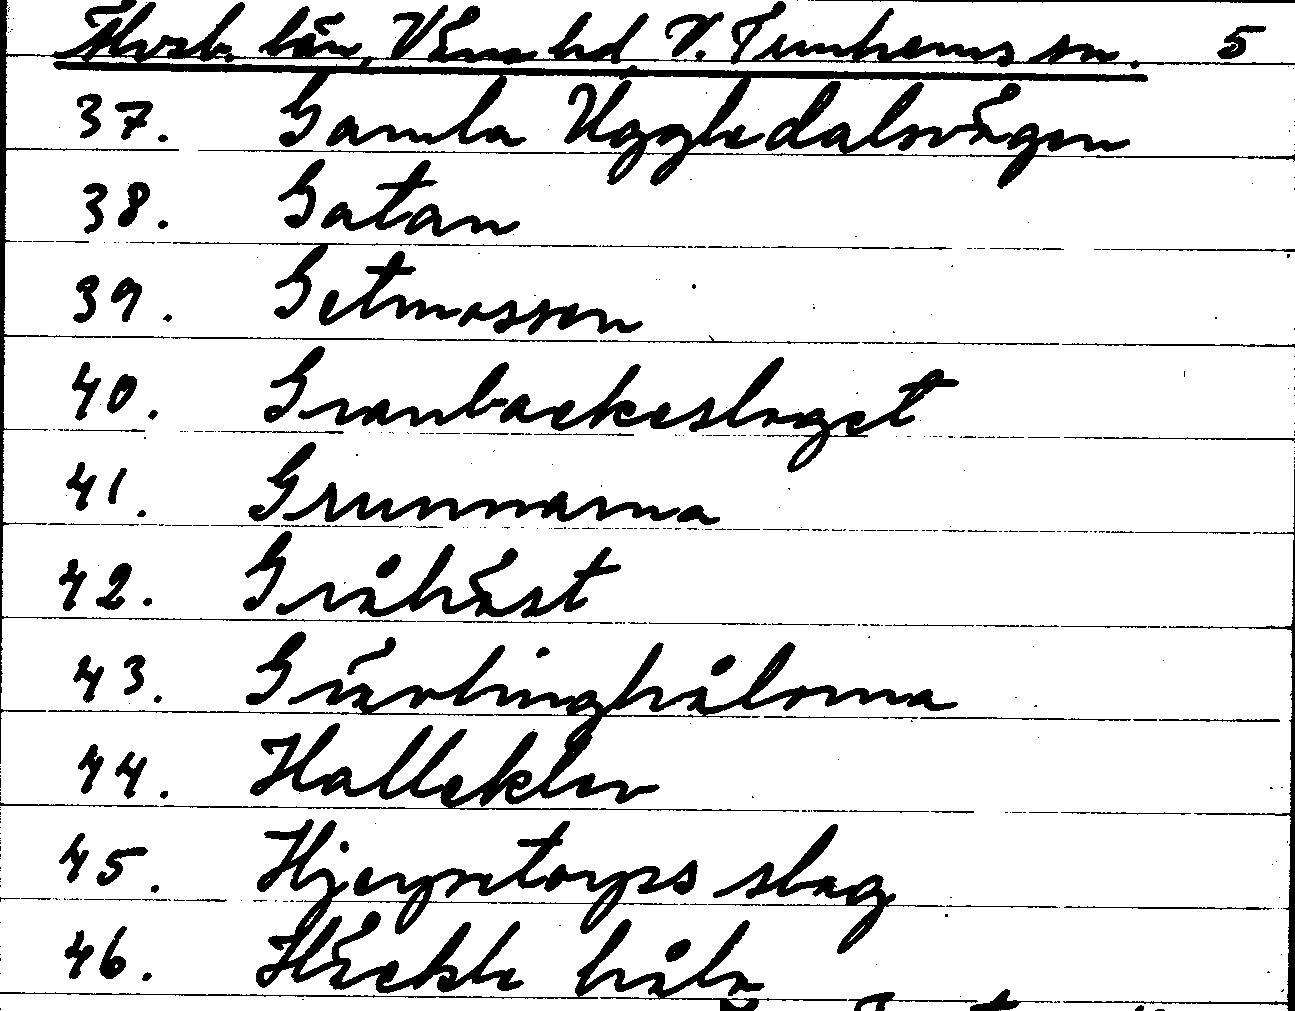 Älvsb. län, Väne hd, V. Tunhems sn. 5
37. Gamla Uggledalsvägen
38. Gatan
39. Getmossen
40. Granbackeslaget
41. Grunnarna
42. Gråhäst
43. Grävlinghålorna
44. Halleklev
45. slag
46. Häckle håla